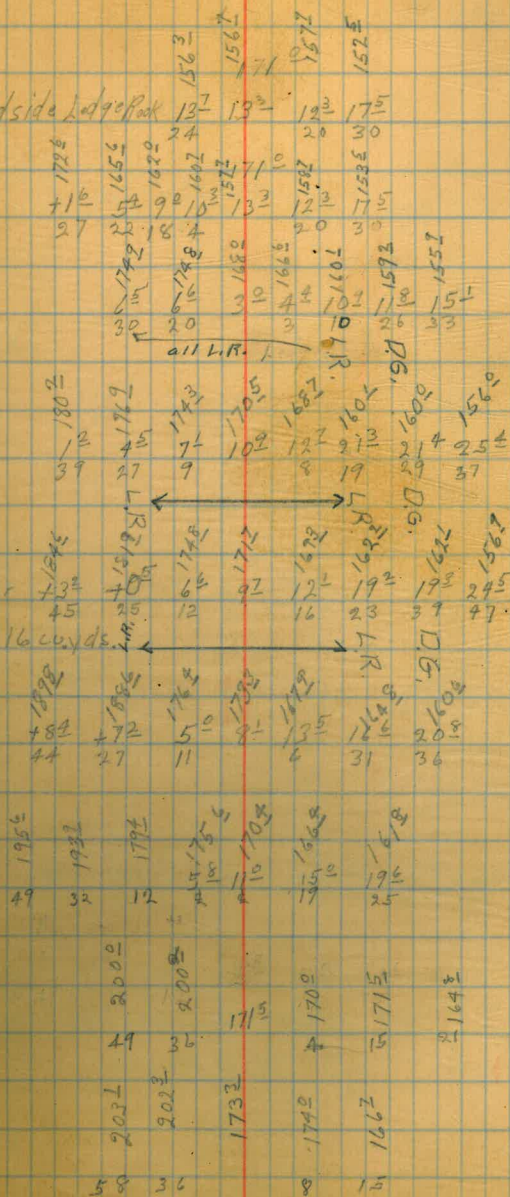 156 3 156 7 157 7 152 5
171 0
dside Ledge Rock 13 7 13 3 12 3 17 5
24 20 30
172 6 165 6 162 0 160 7 157 7 171 0 158 7 153 5
+1 6 5 4 9 0 10 3 13 3 12 3 17 5
27 22 18 4 20 30
174 9 174 8 168 0 166 6 160 9 159 2 155 9
6 5 6 6 3 0 4 4 10 1 11 8 15 1
30 20 3 10 26 33
all L.R. L.R. D.G.
180 2 176 9 174 3 170 5 168 7 160 1 160 0 156 0
1 2 4 5 7 1 10 9 12 7 21 3 21 4 25 4
39 27 9 8 19 29 37
L.R. L.R. D.G.
184 6 181 9 174 8 171 7 169 3 162 2 162 1 156 9
+3 2 +0 5 6 6 9 7 12 1 19 2 19 3 24 5
45 25 12 16 23 39 47
16 cu. yds. L.R. L.R. D.G.
189 8 188 6 176 4 173 3 167 9 164 8 160 6
+8 4 +7 2 5 0 8 1 13 5 16 6 20 8
44 27 11 6 31 36
195 6 193 2 179 4 175 6 170 4 166 4 161 8
5 8 11 0 15 0 19 6
49 32 12 19 25
200 0 200 2 171 5 170 0 171 5 164 8
49 36 4 15 21
203 1 202 3 173 3 174 0 166 7
58 36 8 15